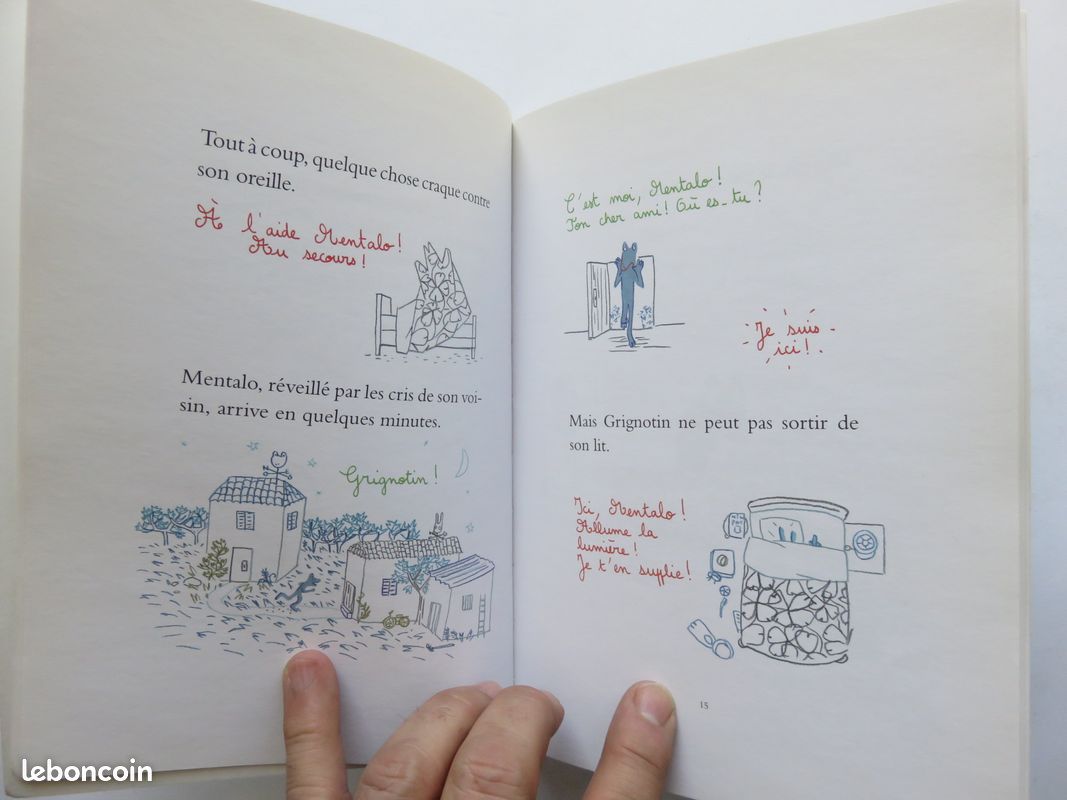 Tout à coup, quelque chose craque contre
son oreille.
À l'aide Mentalo !
Au secours !
Mentalo, réveillé par les cris de son voi-
sin, arrive en quelques minutes.
Grignotin !
C'est moi, Mentalo !
Ton cher ami ! Où es-tu ?
Je suis
ici !
Mais Grignotin ne peut pas sortir de
son lit.
Ici, Mentalo !
Allume la
lumière !
Je t'en suplie !
15
leboncoin